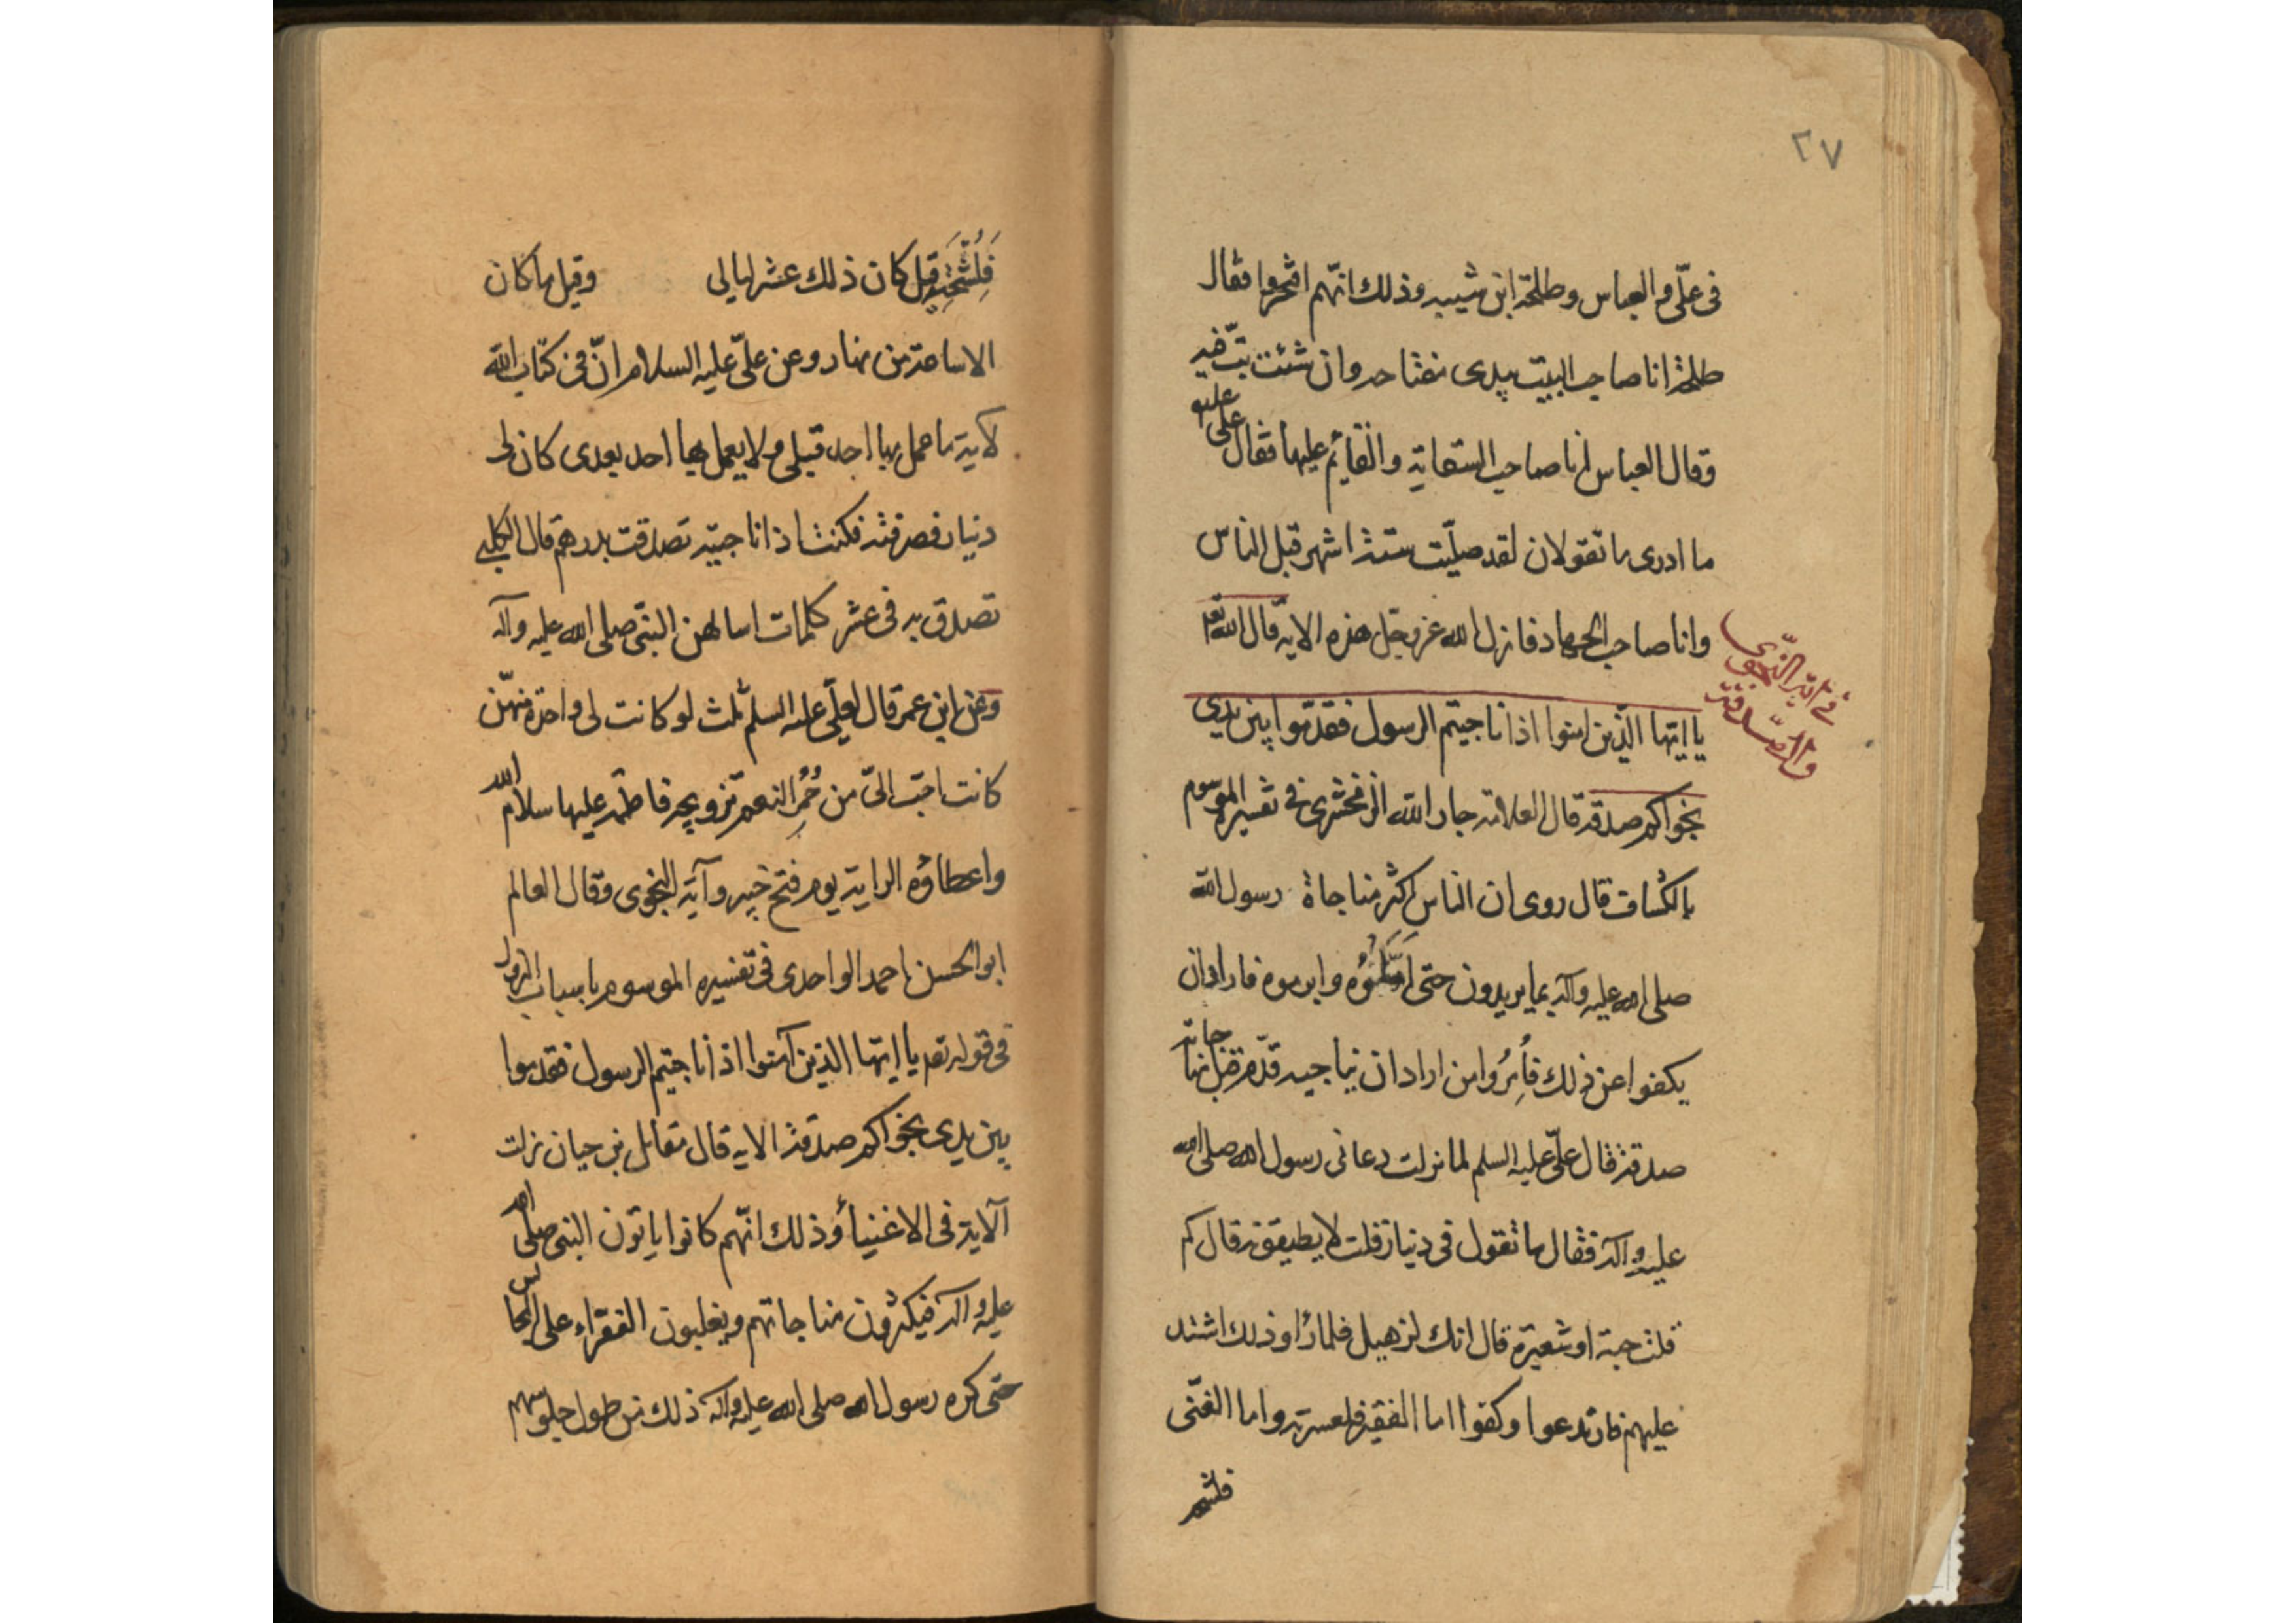 ٢٧
فى علّى و العباس وطلحة ابن شيبه وذلك انّهم افتخروا فقال
طلحة انا صاحب البيت بيدى مفتاحه وان شئت بتّ فيه
وقال العباس انا صاحب السقاية والقائم عليها فقال على عليه
ما ادرى ما تقولان لقد صلّيت ستة اشهر قبل الناس
وانا صاحب الجهاد فانزل الله عز وجل هذه الاية قال الله تع
فى آية النجوى
والصّدقة
يا ايّها الّذين امنوا اذا ناجيتم الرسول فقدّموا بين يدى
نجواكم صدقة قال العلامة جار الله الزمخشرى فى تفسيره الموسوم
بالكشاف قال روى ان الناس اكثر مناجاة رسول الله
صلى الله عليه وآله بما يريدون حتى املّوه وابرموه فاراد ان
يكفوا عن ذلك فأُمِرُوا من اراد ان يناجيه قدّم قبل مناجاته
صدقة قال علىّ عليه السلم لما نزلت دعانى رسول الله صلى الله
عليه وآله فقال ما تقول فى دينار قلت لا يطيقونه قال كم
قلت حبة او شعيرة قال انك لزهيد فلما رأوا ذلك اشتد
عليهم فارتدعوا وكفوا اما الفقير فلعسرته واما الغنّى
فلشحه
فَلِشُحِّهِ قيل كان ذلك عشر ليالى وقيل ما كان
الا ساعة من نهار وعن علىّ عليه السلام انّ فى كتاب الله
لآية ما عمل بها احد قبلى ولا يعمل بها احد بعدى كان لى
دينار فصرفته فكنت اذا ناجيته تصدقت بدرهم قال الكلبى
تصدق به فى عشر كلمات اسالهن النبّى صلى الله عليه وآله
وعن ابن عمر قال لعلّى عليه السلم ثلث لو كانت لى واحدة منهّن
كانت احبّ الىّ من حُمُرِ النعم تزويجه فاطمة عليها سلام الله
واعطاؤه الراية يوم فتح خيبر وآية النجوى وقال العالم
ابو الحسن احمد الواحدى فى تفسيره الموسوم باسباب النزول
فى قوله تعه يا ايّها الذين آمنوا اذا ناجيتم الرسول فقدموا
بين يدى نجواكم صدقة الاية قال مقاتل بن حيان نزلت
الآية فى الاغنيأ وذلك انّهم كانوا ياتون النبى صلى الله
عليه وآله فيكثرون مناجاتهم ويغلبون الفقراء على المجالس
حتى كره رسول الله صلى الله عليه وآله ذلك من طول جلوسهم